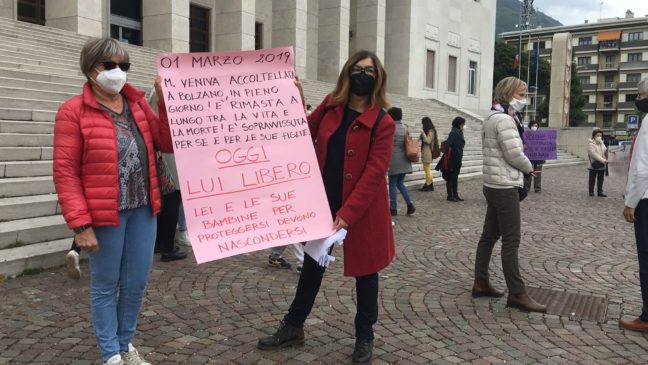 01 MARZO 2019
M. VENIVA ACCOLTELLATA
A BOLZANO, IN PIENO
GIORNO! E' RIMASTA A
LUNGO TRA LA VITA E
LA MORTE! E' SOPRAVVISSUTA
PER SE E PER LE SUE FIGLIE
OGGI
LUI LIBERO
LEI E LE SUE
BAMBINE PER
PROTEGGERSI DEVONO
NASCONDERSI
P